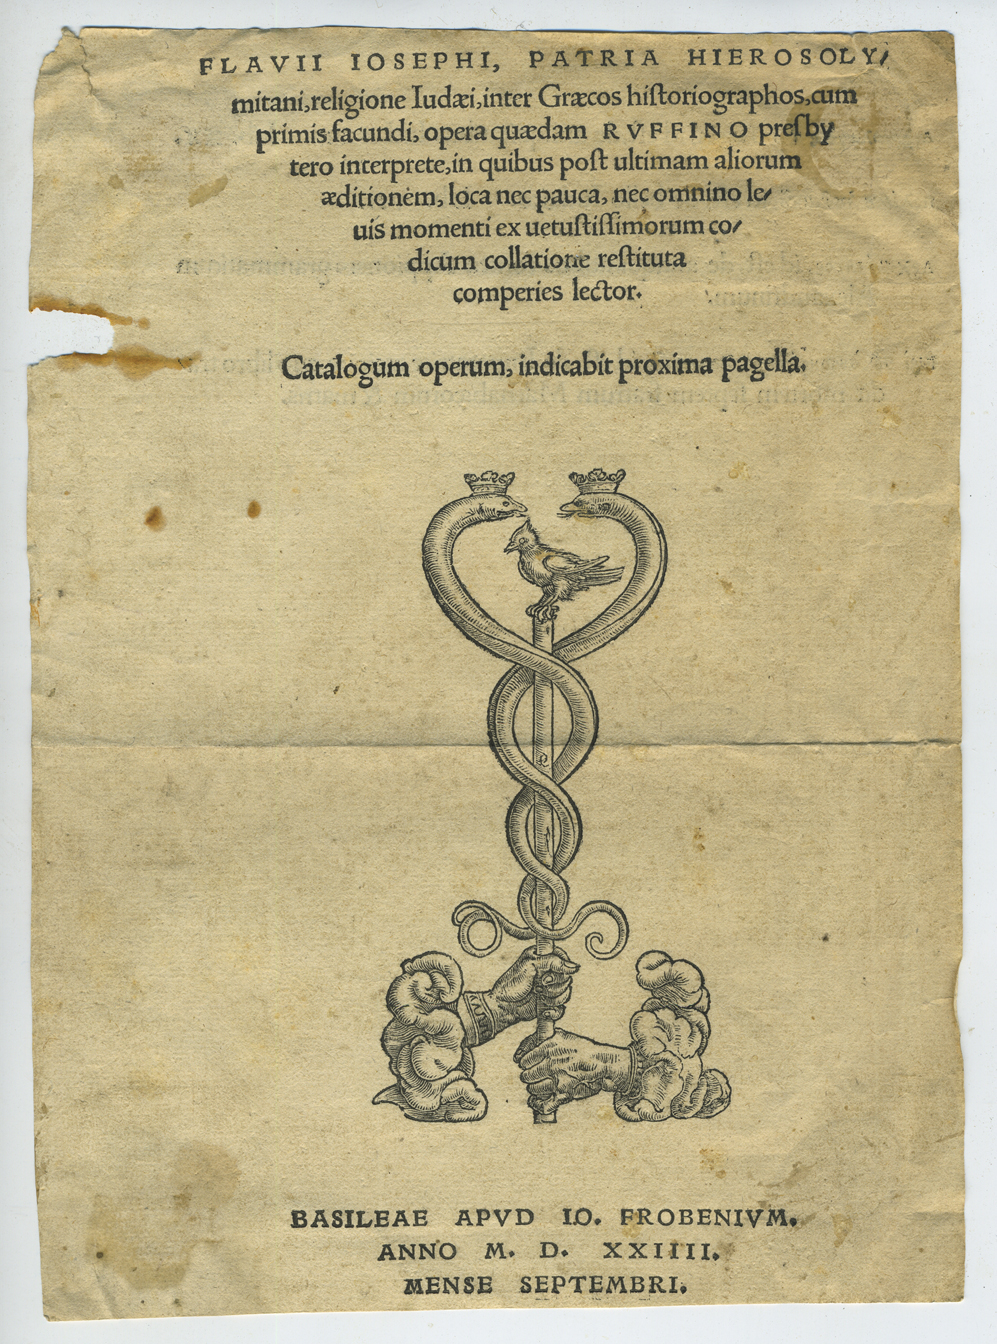 FLAVII IOSEPHI, PATRIA HIEROSOLY/
mitani,religione Iudæi,inter Græcos hiſtoriographos,cum
primis facundi, opera quædam RVFFINO preſby
tero interprete,in quibus poſt ultimam aliorum
æditionem, loca nec pauca, nec omnino le/
uis momenti ex uetuſtiſſimorum co/
dicum collatione reſtituta
comperies lector.
Catalogum operum, indicabit proxima pagella.
BASILEAE APVD IO. FROBENIVM.
ANNO M. D. XXIIII.
MENSE SEPTEMBRI.